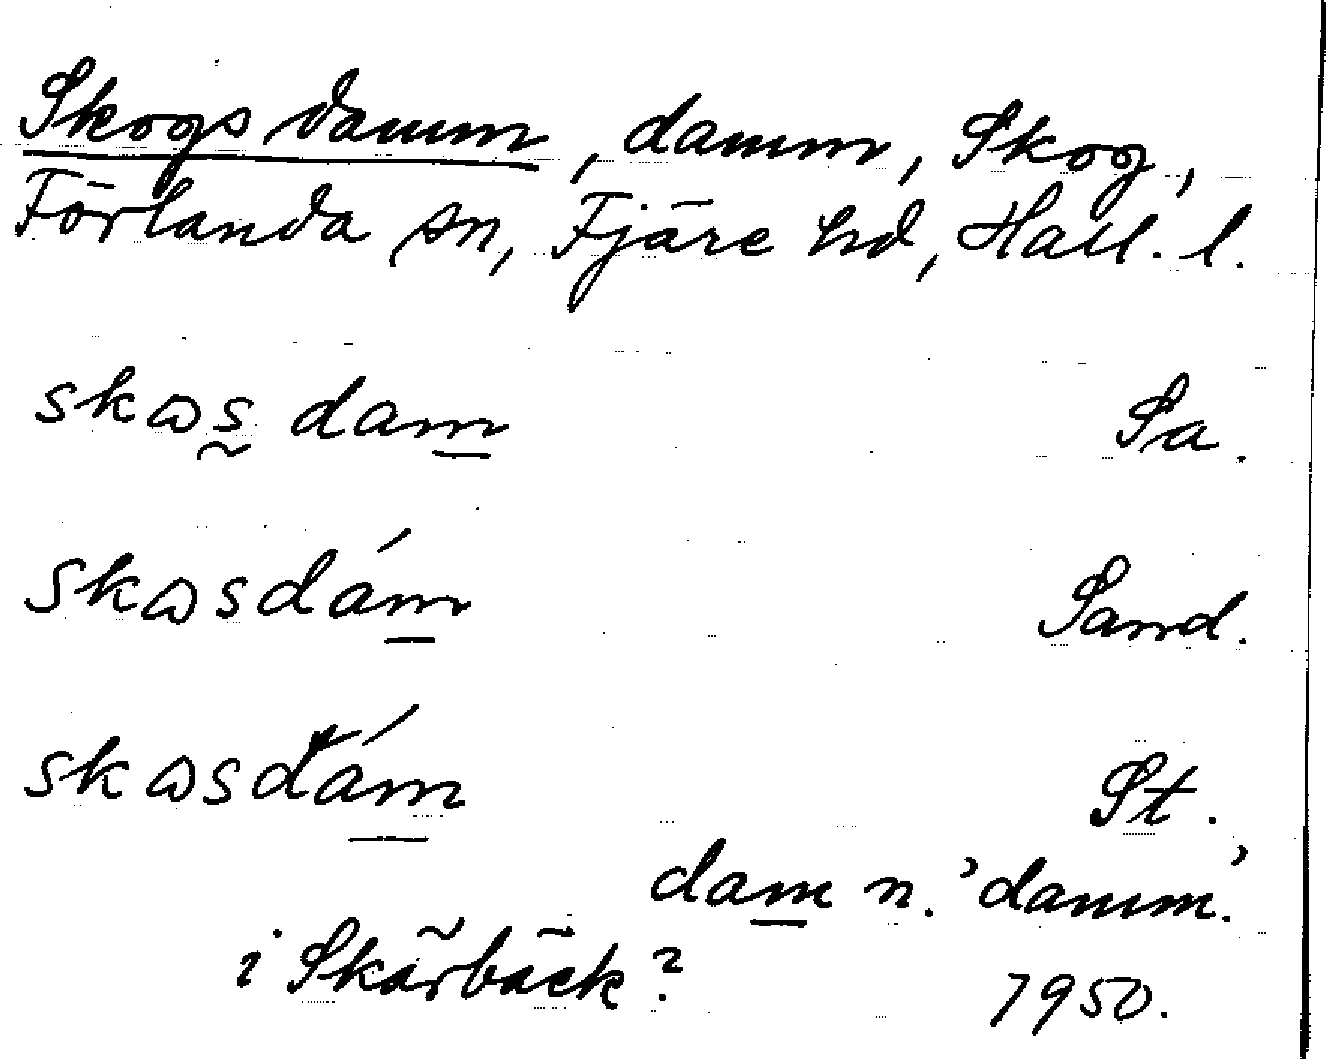 Skogsdamm, damm, Skog,
Förlanda sn, Fjäre hd, Hall. l.
skɷs dam Sa.
skɷsdám Sand.
skɷsdám St.
dam n. 'damm'.
i Skärbäck? 1950.